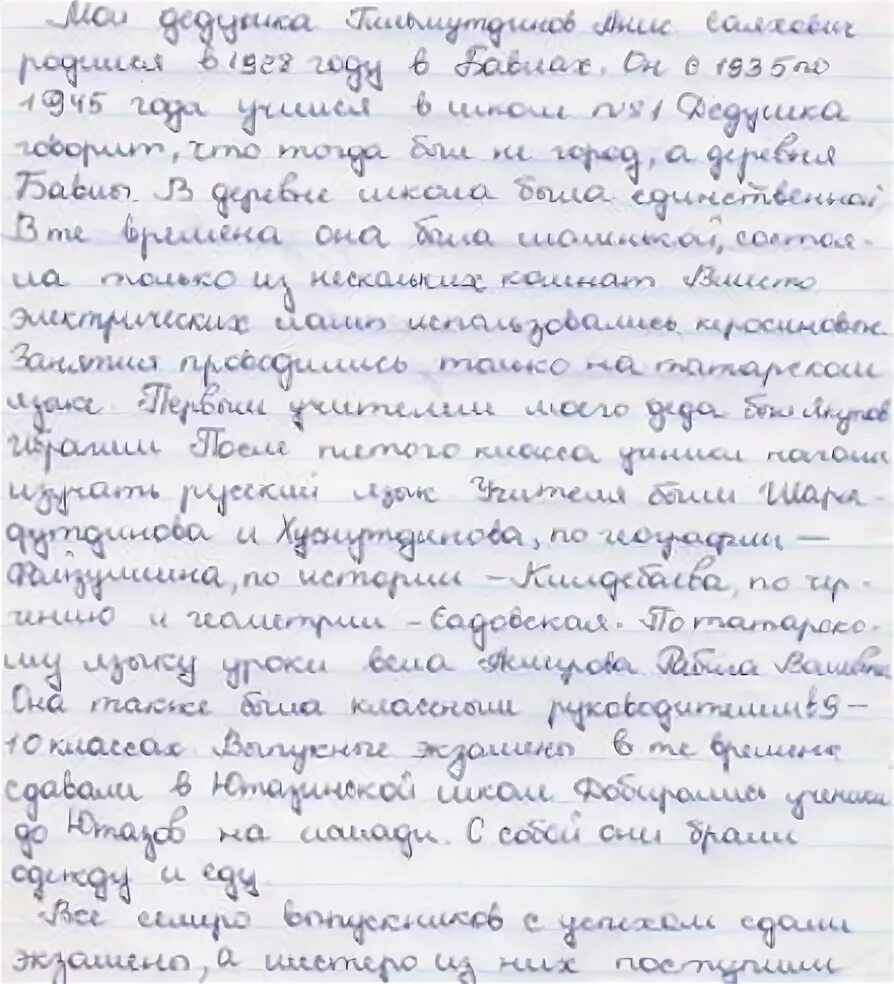 Мой дедушка Гильмутдинов Анис Салихович
родился в 1928 году в Бавлах. Он с 1935 по
1945 года учился в школе №1 Дедушка
говорит, что тогда был не город, а деревня
Бавлы. В деревне школа была единственной
В те времена она была маленькой, состоя-
ла только из нескольких комнат. Вместо
электрических ламп использовались керосиновые.
Занятия проводились только на татарском
языке. Первым учителем моего деда был Якупов
Ибрагим После пятого класса ученики начали
изучать русский язык Учителя были Шара-
футдинова и Хуснутдинова, по географии —
Файзуллина, по истории – Кильдебаева, по чер-
чению и геометрии – Садовская. По татарско-
му языку уроки вела Амирова Рабига
Она также была классным руководителем в 9 –
10 классах. Выпускные экзамены в те времена
сдавали в Ютазинской школе Добирались ученики
до Ютазов на лошади. С собой они брали
одежду и еду
Все семеро выпускников с успехом сдали
экзамены, а шестеро из них поступили